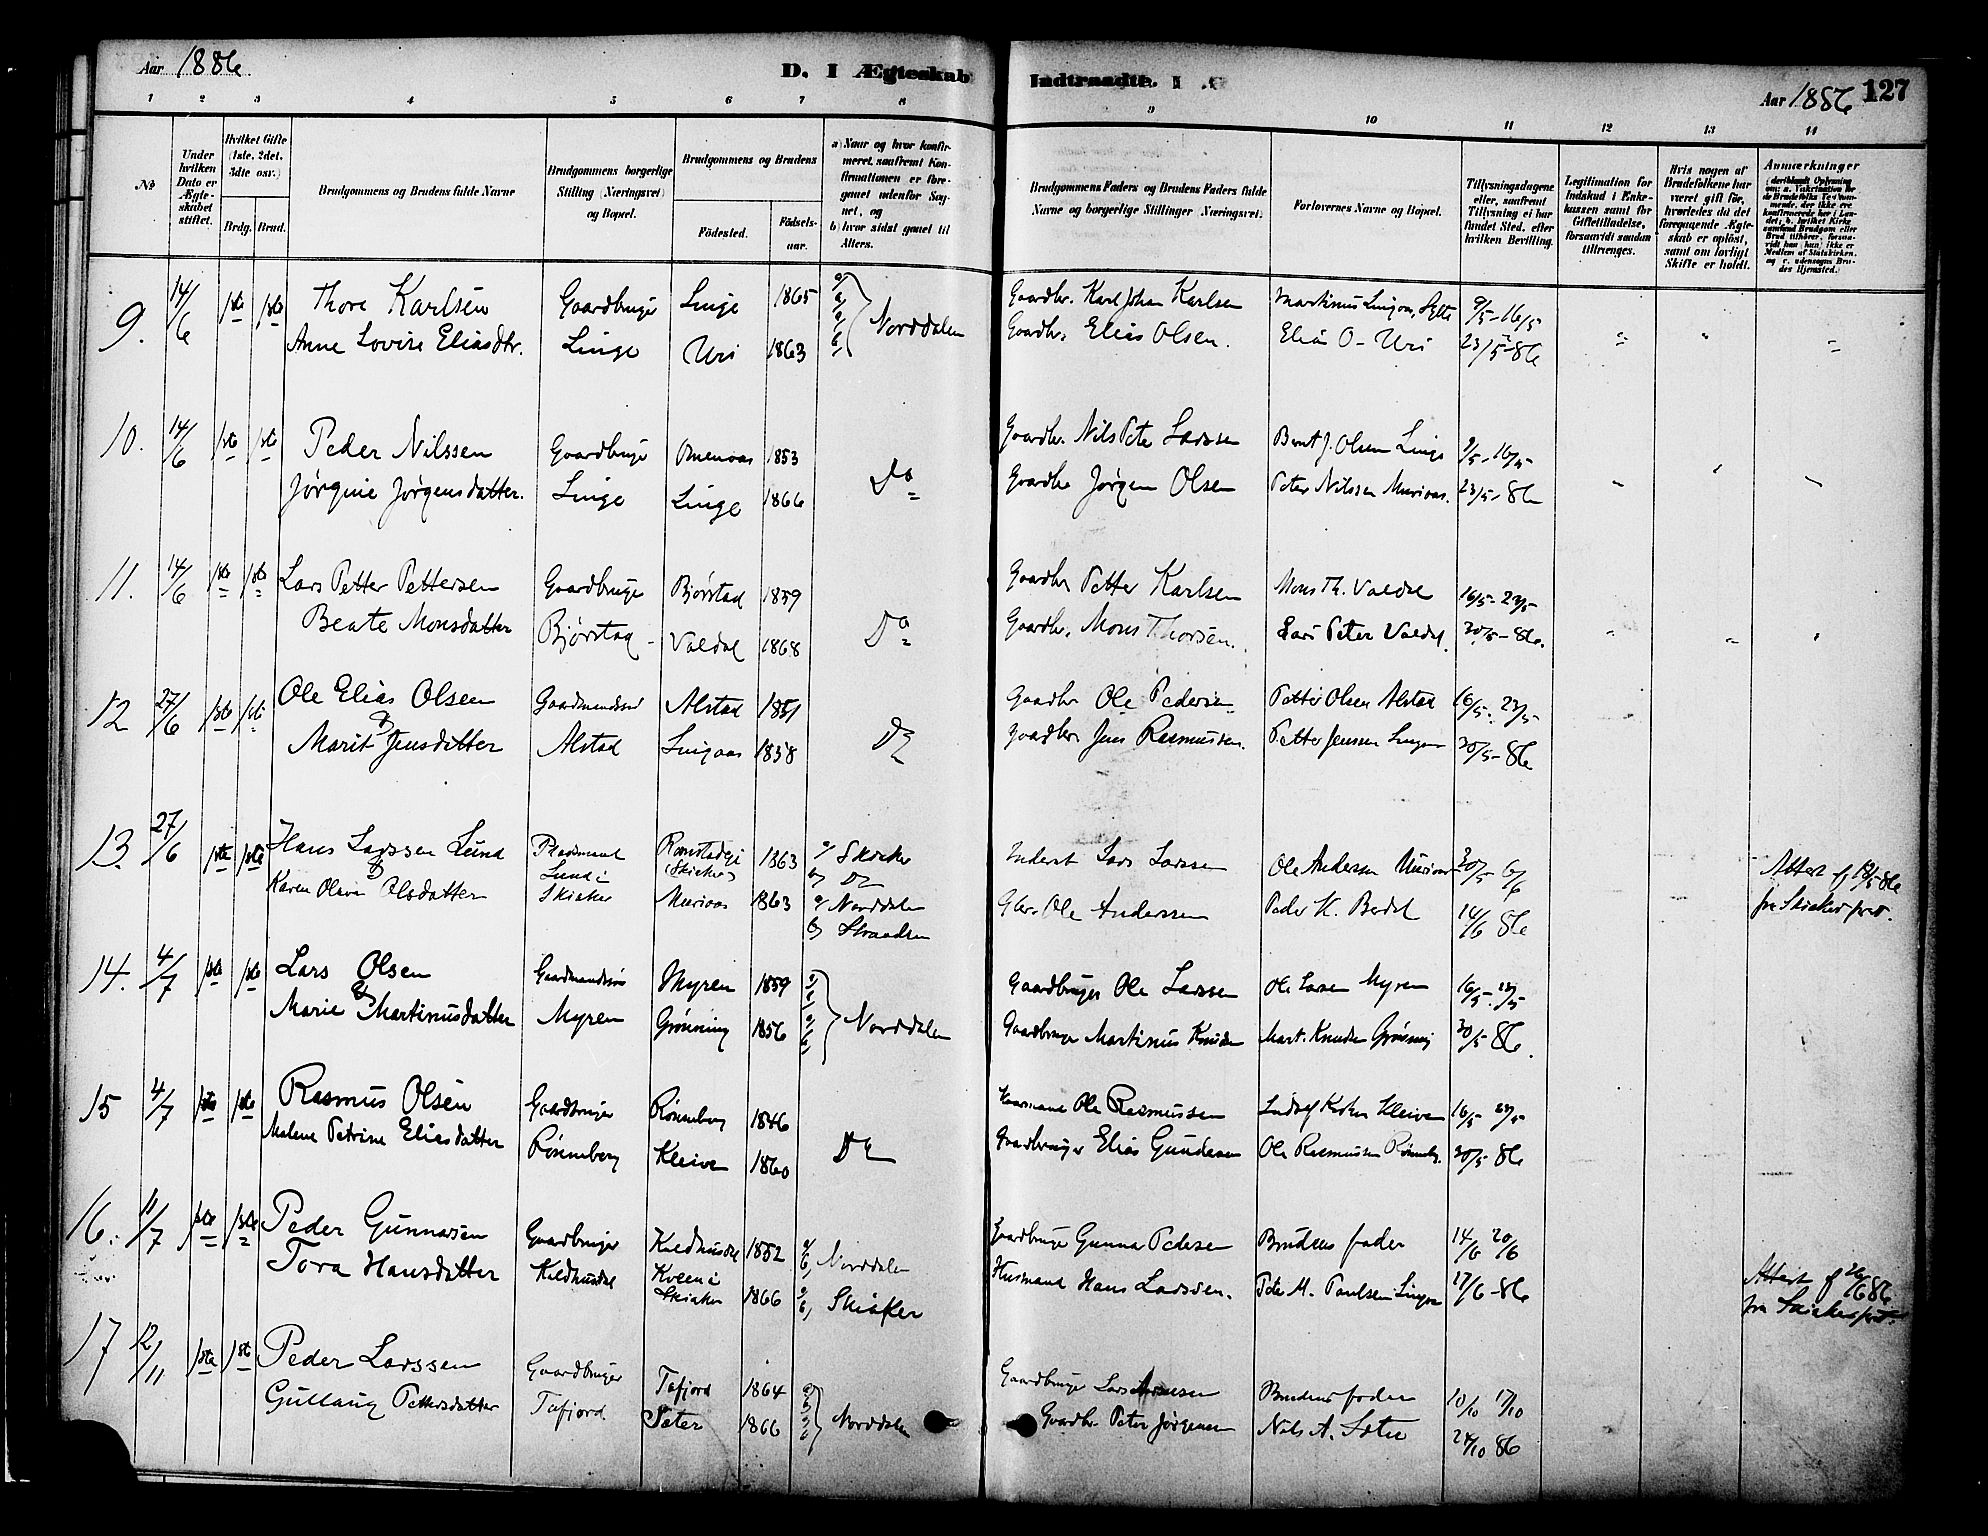 Aar 1886
D. I Ægteskab Indtraadte.
Aar 1886 127
1 2 3 4 5 6 7 8 9 10 11 12 13 14
No
Under hvilken Dato er Ægteskabet stiftet.
Hvilket Gifte (1ste, 2det, 3dte osv.)
Brdg. Brud.
Brudgommens og Brudens fulde Navne
Brudgommens borgerlige Stilling (Næringsvei) og Bopæl.
Brudgommens og Brudens
Födested. Födselsaar.
a) Naar og hvor konfirmeret, saafremt Konfirmationen er foregaaet udenfor Sognet, og
b) hvor sidst gaaet til Alters.
Brudgommens Faders og Brudens Faders fulde Navne og borgerlige Stillinger (Næringsvei).
Forlovernes Navne og Bopæl.
Tillysningsdagene eller, saafremt Tillysning ei har fundet Sted, efter hvilken Bevilling.
Legitimation for Indskud i Enkekassen samt for Giftetilladelse, forsaavidt saadan tiltrænges.
Hvis nogen af Brudefolkene har været gift för, hvorledes da det foregaaende Ægteskab er oplöst, samt om lovligt Skifte er holdt.
Anmærkninger
9. 14/6 1ste 1ste Thore Karlsen Gaardbruger Linge 1865 Gaardbr. Karl Johan Karlsen Martinus Lingaas, Sylte 9/5 - 16/5
Anne Lovise Eliasdtr. Linge Uri 1863 Norddalen Gaardbr. Elias Olsen. Elias O. Uri 23/5-86
10. 14/6 1ste 1ste Peder Nilssen Gaardbruger Omenaas 1853 Do Gaardbr. Nils Peter Larssen Bernt J. Olsen Linge 9/5 - 16/5
Jørgine Jørgensdatter. Linge Linge 1866 Gaardbr Jørgen Olsen Peter Nilssen Muriaas. 23/5-86
11. 14/6 1ste 1ste Lars Petter Pettersen Gaardbruger Bjørstad 1859 Gaardbr Petter Karlsen Mons Th. Valdal 16/5 - 23/5
Beate Monsdatter Bjørstad Valdal 1868 Do Gaardbr. Mons Thorsen. Lars Peter Valdal. 30/5-86.
12 27/6 1ste 1ste Ole Elias Olsen Gaardmandssøn Alstad 1851 Gaardbr Ole Pedersen Petter Olsen Alstad 16/5 - 23/5
&
Marit Jensdatter Alstad Lingaas 1858 Do Gaardbr Jens Rasmussen. Petter Jenssen Lingaas 30/5-86
13. 27/6 1ste 1ste Hans Larssen Lund Pladsmand 1863 a) Skiaker Inderst Lars Larssen Ole Andersen Muriaas 30/5 6/6 Attest af 18/5 86
& Lund i (Skiaker) b) Do
Karen Oline Olsdatter Skiaker Muriaas 1863 a) Norddalen Gbr. Ole Anderssen Peder K. Berdal 14/6 86 fra Skiaker prst.
b) Stranden
14. 4/7 1ste 1ste Lars Olsen Gaardmandssøn Myren 1859 Gaardbruger Ole Larssen Ole Larsen Myren 16/5 - 23/5
&
Marie Martinusdatter Myren Grønning 1856 Norddalen Gaardbruger Martinus Knudsen Mart. Knudsen Grønning 30/5-86.
15 4/7 1ste 1ste Rasmus Olsen Gaardbruger Rønneberg 1846 Kaarmand Ole Rasmussen Kleiven 16/5 23/5
Malene Petrine Eliasdatter Rønneberg Kleiven 1860 Do Gaardbruger Elias Gundersen Ole Rasmussen Rønneby. 30/5-86
16. 11/7 1ste 1ste Peder Gunnarsen Gaardbruger Kaldhusdal 1852 Norddalen Gaardbruger Gunnar Pedersen Brudens fader 14/6 20/6
Tora Hansdatter Kaldhusdal Kveen i Skiaker 1866 Skiaker Husmand Hans Larssen. Peter M. Paulsen Lingaas 27/6-86 Attest af 26/6 86
fra Skiaker prst.
17 12/11 1ste 1ste Peder Larssen Gaardbruger Tafjord 1864 Gaardbruger Lars Brudens fader 10/10 17/10
Gullaug Pettersdatter Tafjord Sæter 1866 Norddalen Gaardbr. Peter Jørgensen Nils A. Sæter 24/10 86